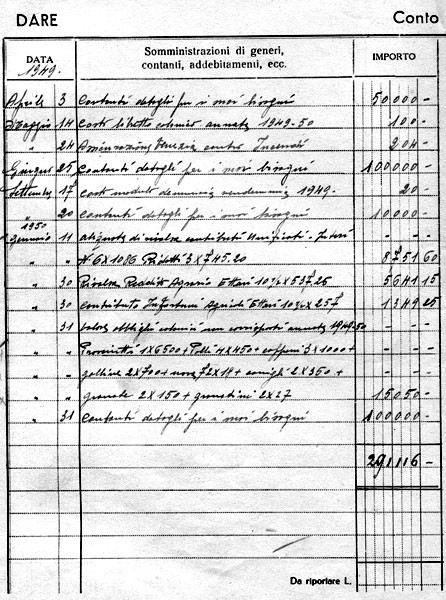 DARE Conto
DATA Somministrazioni di generi, IMPORTO
1949. contanti, addebitamenti, ecc.
Aprile 3 Contanti datogli per i suoi bisogni 50000 –
Maggio 14 Costo libretto colonico annata 1949-50 100 –
" 24 Assicurazione Venezia contro Incendi 204 –
Giugno 25 Contanti datogli per i suoi bisogni 100000 –
Settembre 17 costo modulo denuncia vendemmia 1949 - 20 –
" 20 contanti datogli per i suoi bisogni 10000 –
1950
Gennaio 11 aliquota di rivalsa contributi Unificati - – – –
" " N. 6 X 1086 Ridotti 3 X 745.20 8751 60
" 30 Rivalsa Reddito Agrario Ettari 10¾ X 537.25 5641 15
" 30 contributo Agricoli Ettari 10¾ X 257 1349 25
" 31 valore obblighi colonia non corrisposti annata 1949-50 – – –
" " Prosciutti 1 X 6500 + Polli 4 X 450 + capponi 3 X 1000 + – – –
" " galline 2 X 700 + uova 72 X 18 + conigli 2 X 350 + – – –
" " 2 X 150 + 2 X 27 15050 –
" 31 contanti datogli per i suoi bisogni 100000 –
291116 –
Da riportare L.